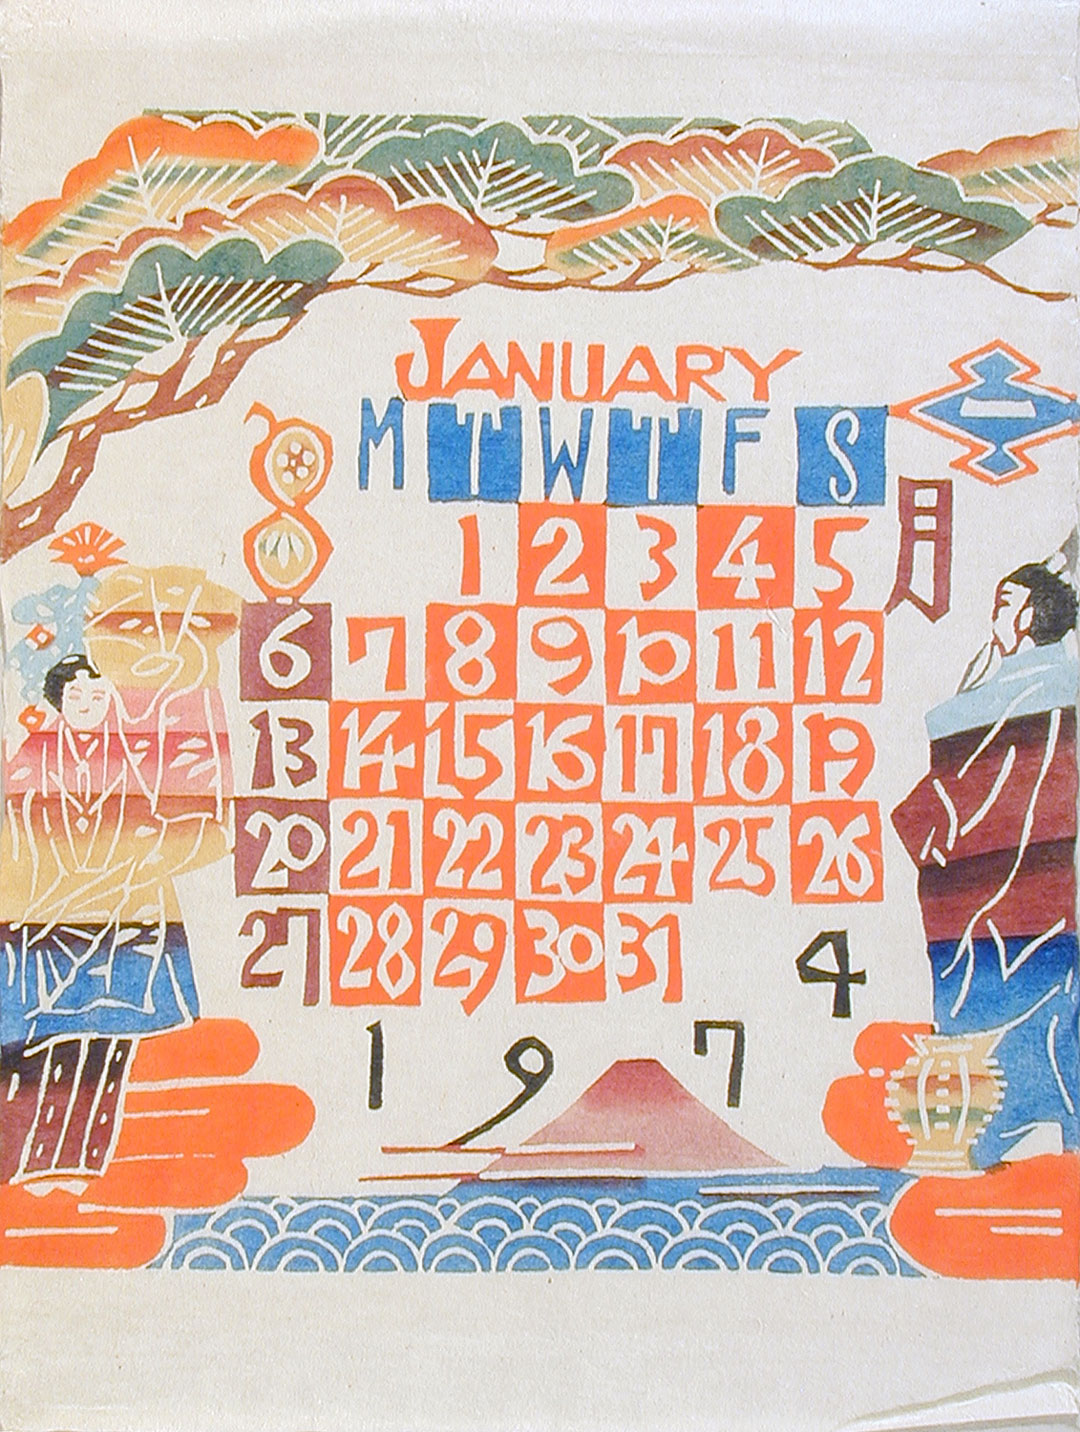 JANUARY
M T W T F S
一月
1 2 3 4 5
6 7 8 9 10 11 12
13 14 15 16 17 18 19
20 21 22 23 24 25 26
27 28 29 30 31
1974